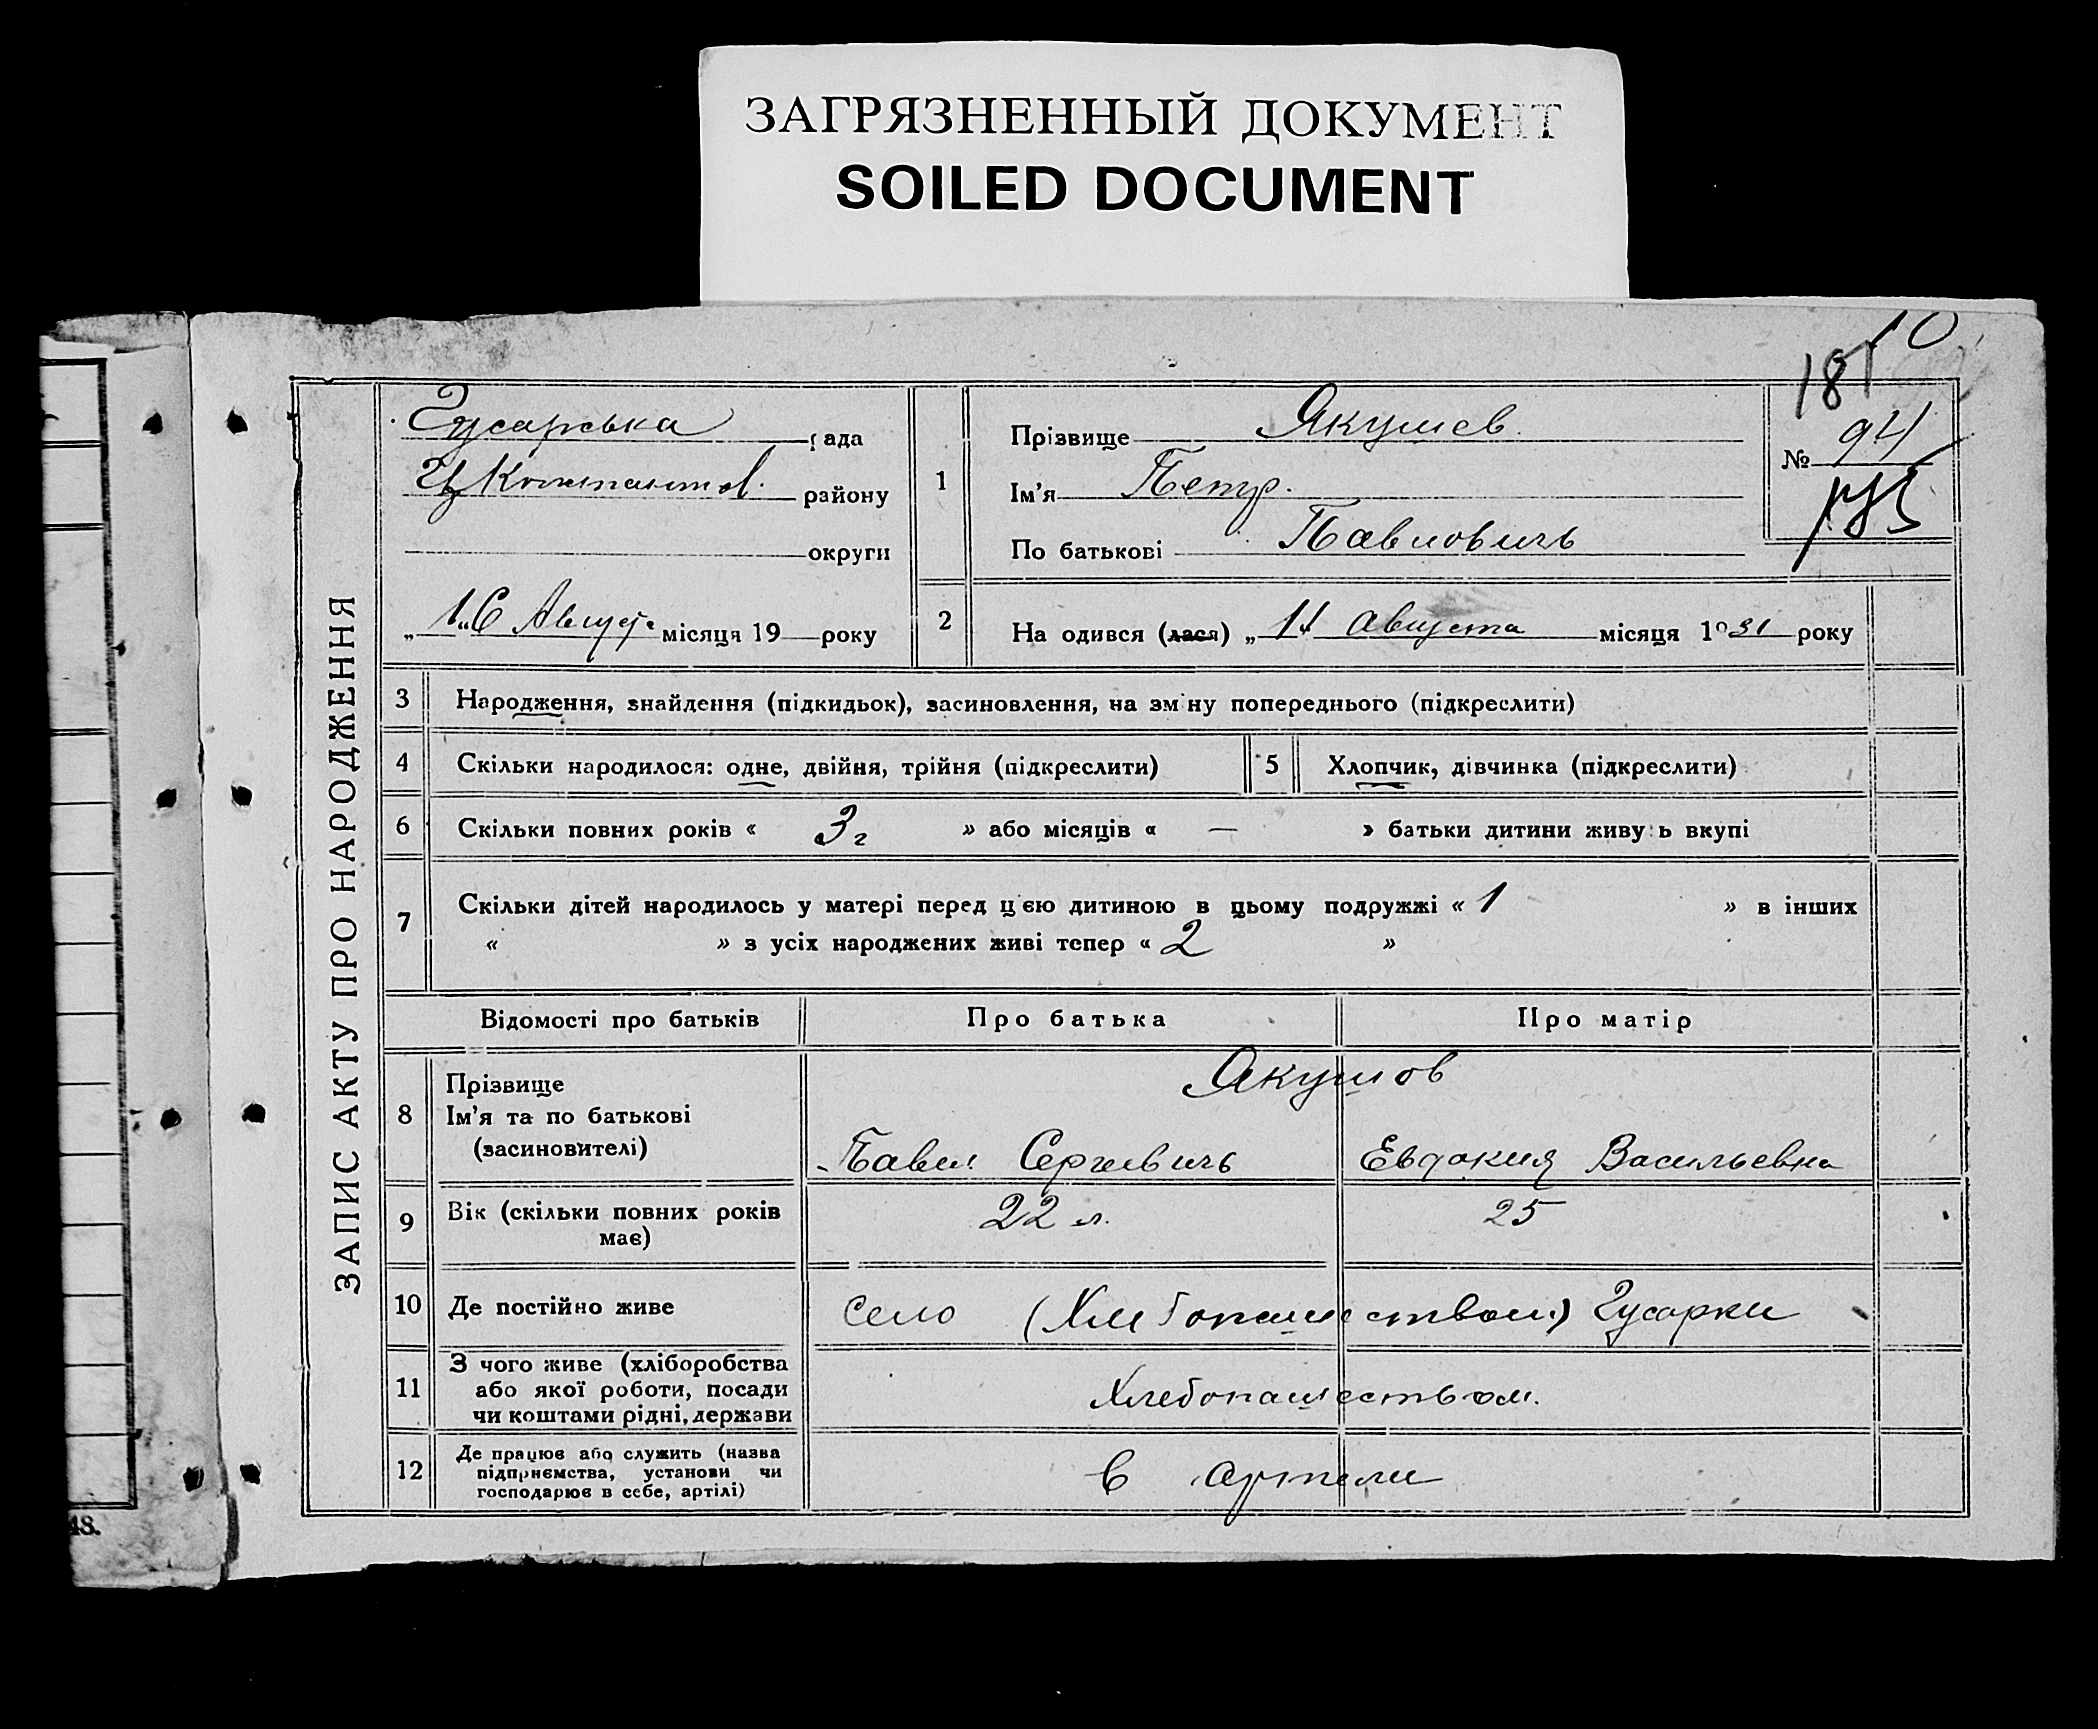 ЗАГРЯЗНЕННЫЙ ДОКУМЕНТ
SOILED DOCUMENT
10
181
ЗАПИС АКТУ ПРО НАРОДЖЕННЯ
Гусарська рада
району
округи
„16 Августа місяця 19 року
1
Прізвище Якушев
Ім'я Петр.
По батькові Павловичь
№ 94
2
На одився (лася) „ 11 августа місяця 1931 року
3 Народження, знайдення (підкидьок), засиновлення, на зм ну попереднього (підкреслити)
4 Скільки народилося: одне, двійня, трійня (підкреслити) 5 Хлопчик, дівчинка (підкреслити)
6 Скільки повних років « 3 г » або місяців « — » батьки дитини живуть вкупі
7 Скільки дітей народилось у матері перед цією дитиною в цьому подружжі « 1 » в інших
« » з усіх народжених живі тепер « 2 »
Відомості про батьків Про батька Про матір
8 Прізвище
Ім'я та по батькові
(засиновителі)
Якушов
Павел Сергеевичь Евдокия Васильевна
9 Вік (скільки повних років
має)
22 л. 25
10 Де постійно живе село (Хлебопашеством) Гусарки
11 З чого живе (хліборобства
або якої роботи, посади
чи коштами рідні, держави
Хлебопашеством.
12 Де працює або служить (назва
підприємства, установи чи
господарює в себе, артілі)
в артели
48.